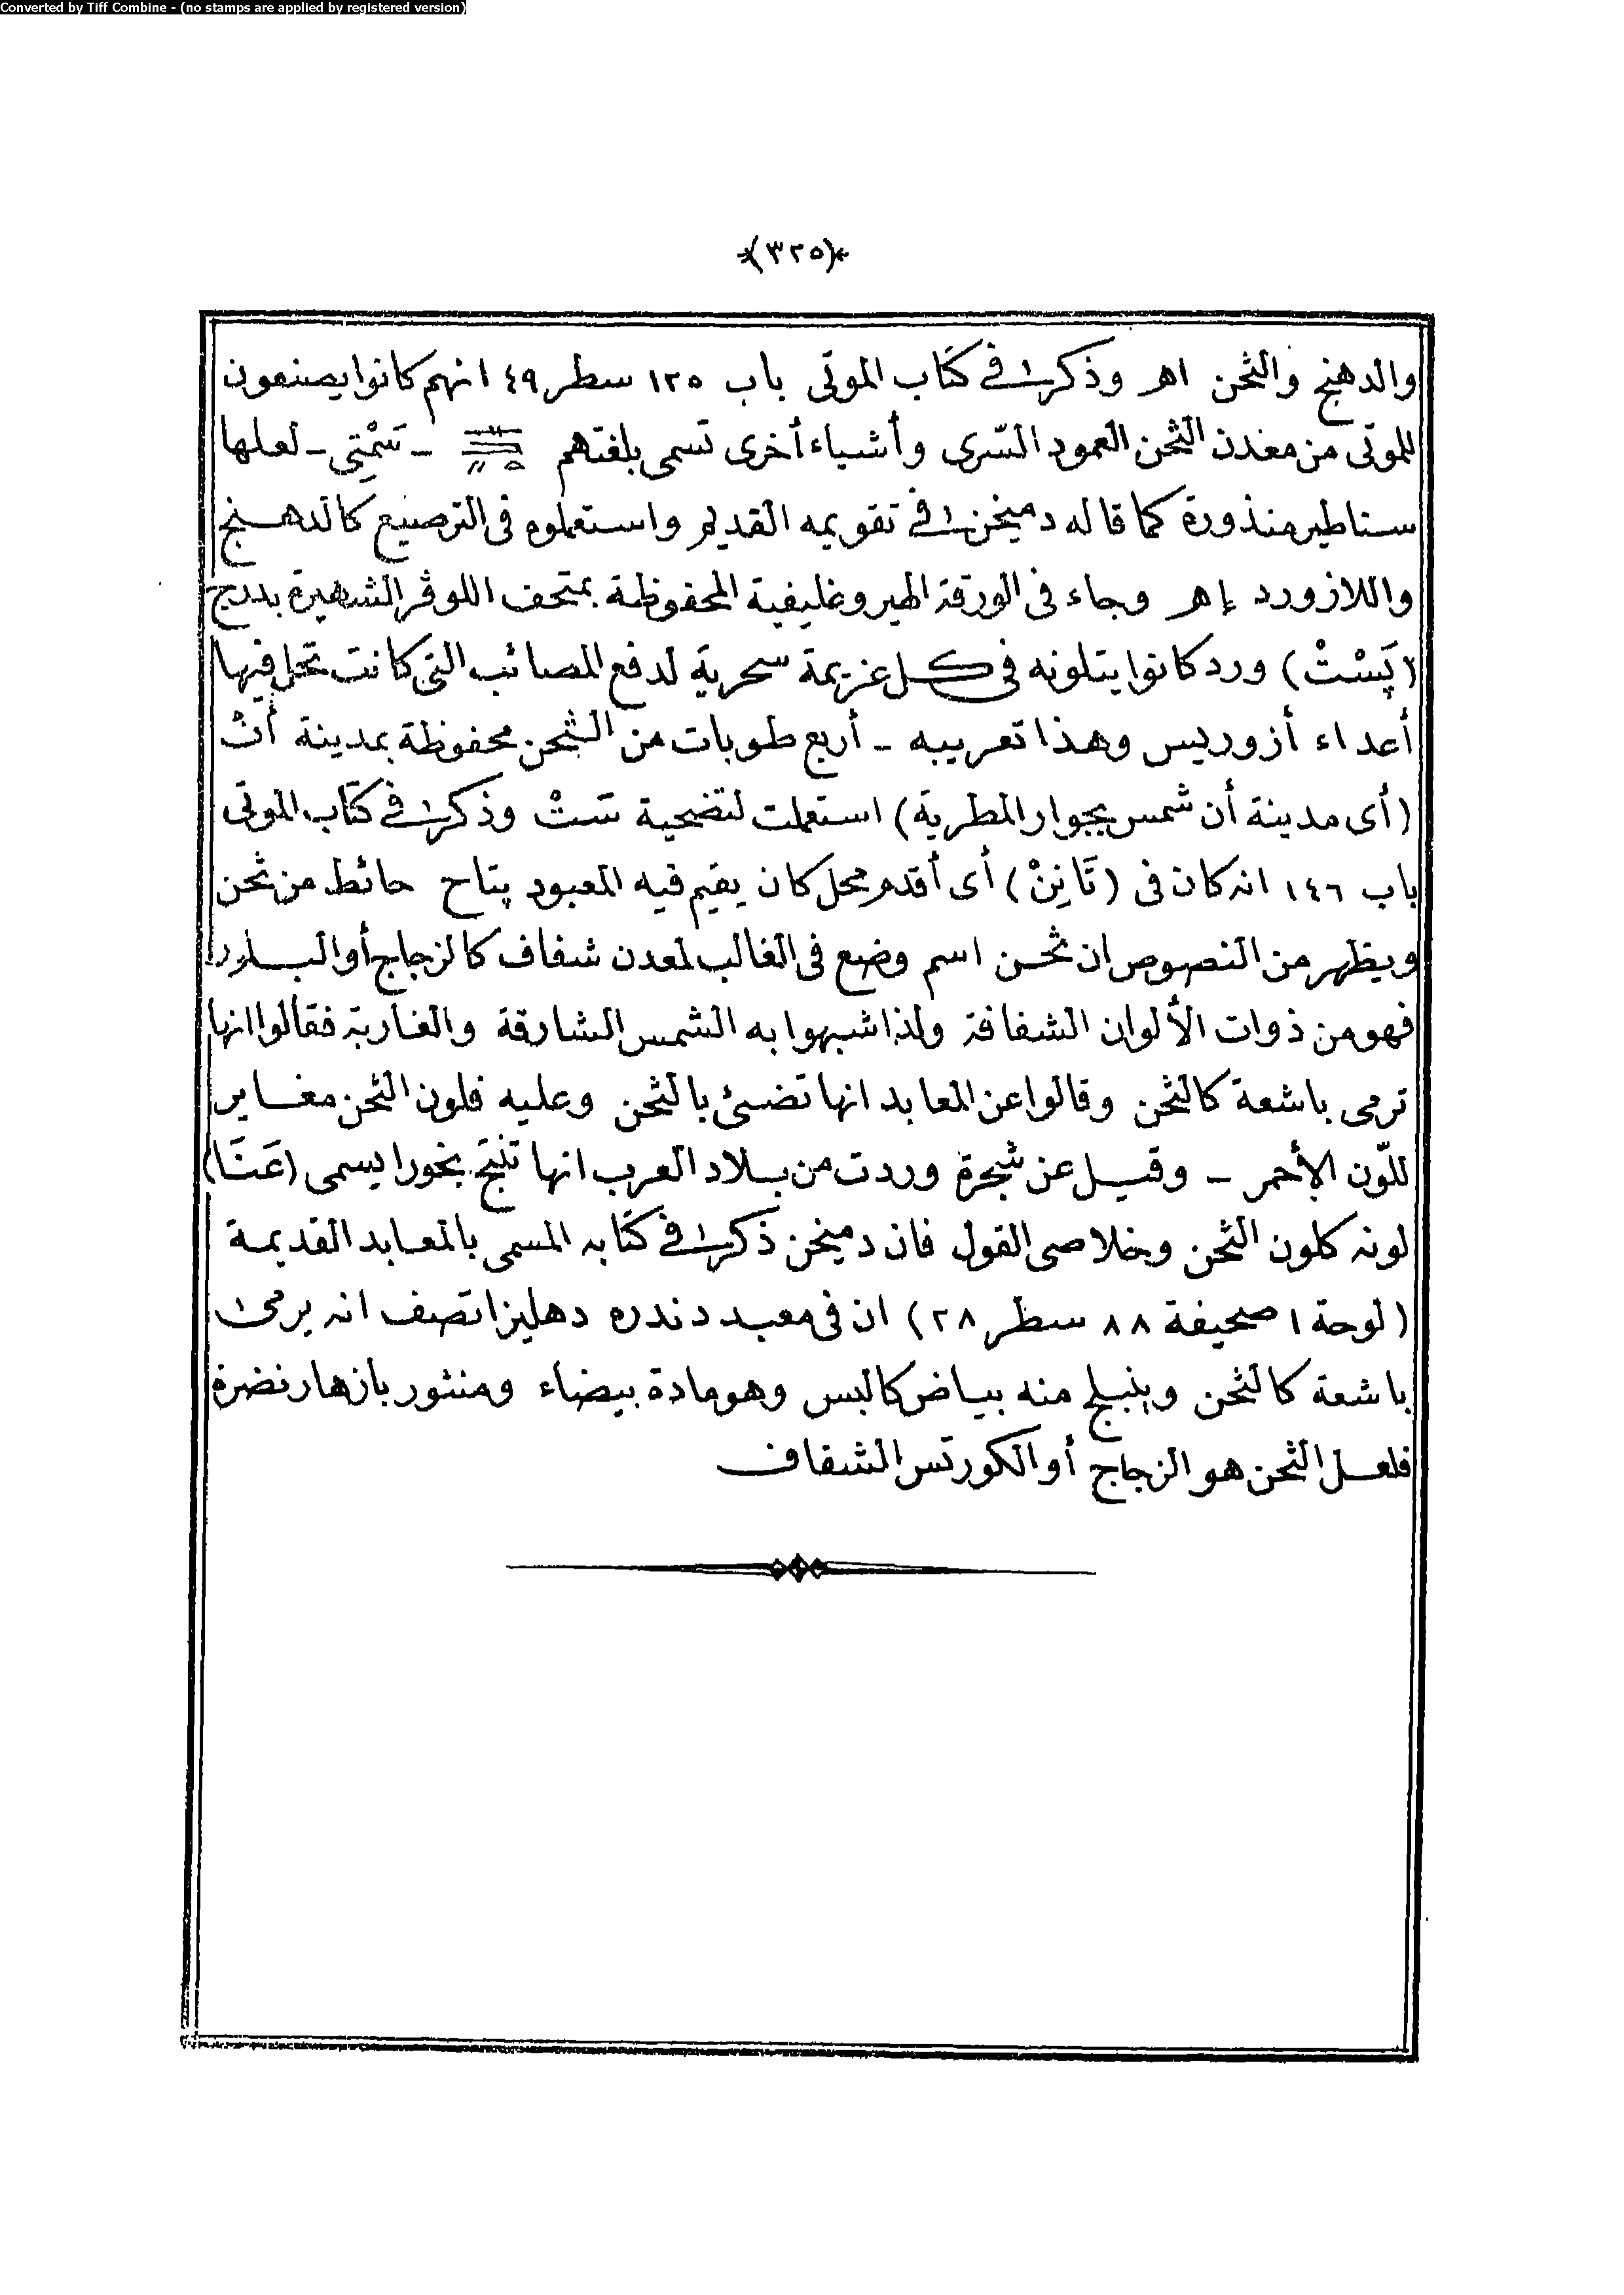 Converted by Tiff Combine - (no stamps are applied by registered version)
(٣٢٥)
والدهنج والثحن اهر وذكر في كتاب الموتى باب ١٢٥ سطر ٤٩ انهم كانوا يصنعون
للموتى من معدن الثحن العمود السّرى وأشياء أخرى تسمى بلغتهم - سَمْتِى - لعلها
سناطير منذورة كما قاله دميخن في تقويمه القديم واستعملوه فى الترصيع كالدهنج
واللازورد إهر وجاء فى الورقة الهيروغليفية المحفوظة بمتحف اللوڤر الشهيرة بدرج
(پَسْتْ) ورد كانوا يتلونه فى كل عزيمة سحرية لدفع المصائب التى كانت تحل فيها
أعداء أزوريس وهذا تعريبه - أربع طوبات من الثحن محفوظة بمدينة أَنْ
(أى مدينة أن شمس بجوار المطرية) استعملت لتضحية سَتْ وذكر في كتاب الموتى
باب ١٤٦ انه كان فى (تَانِنْ) أى أقدم محل كان يقيم فيه المعبود پتاح حائط من ثحن
ويظهر من النصوص ان ثحن اسم وضع فى الغالب لمعدن شفاف كالزجاج أو البلور
فهو من ذوات الألوان الشفافة ولذا شبهوا به الشمس الشارقة والغاربة فقالوا انها
ترمى باشعة كالثحن وقالوا عن المعابد انها تضىئ بالثحن وعليه فلون الثحن مغاير
للّون الأحمر - وقيل عن شجرة وردت من بلاد العرب انها تنتج بخورا يسمى (عَنَتَا)
لونه كلون الثحن وخلاصى القول فان دميخن ذكر في كتابه المسمى بالمعابد القديمة
(لوحة ١ صحيفة ٨٨ سطر ٢٨) ان فى معبد دندره دهليزا تصف انه يرمى
باشعة كالثحن وينبلج منه بياض كالبس وهو مادة بيضاء ومنثور بازهار نضرة
فلعل الثحن هو الزجاج أو الكورتس الشفاف